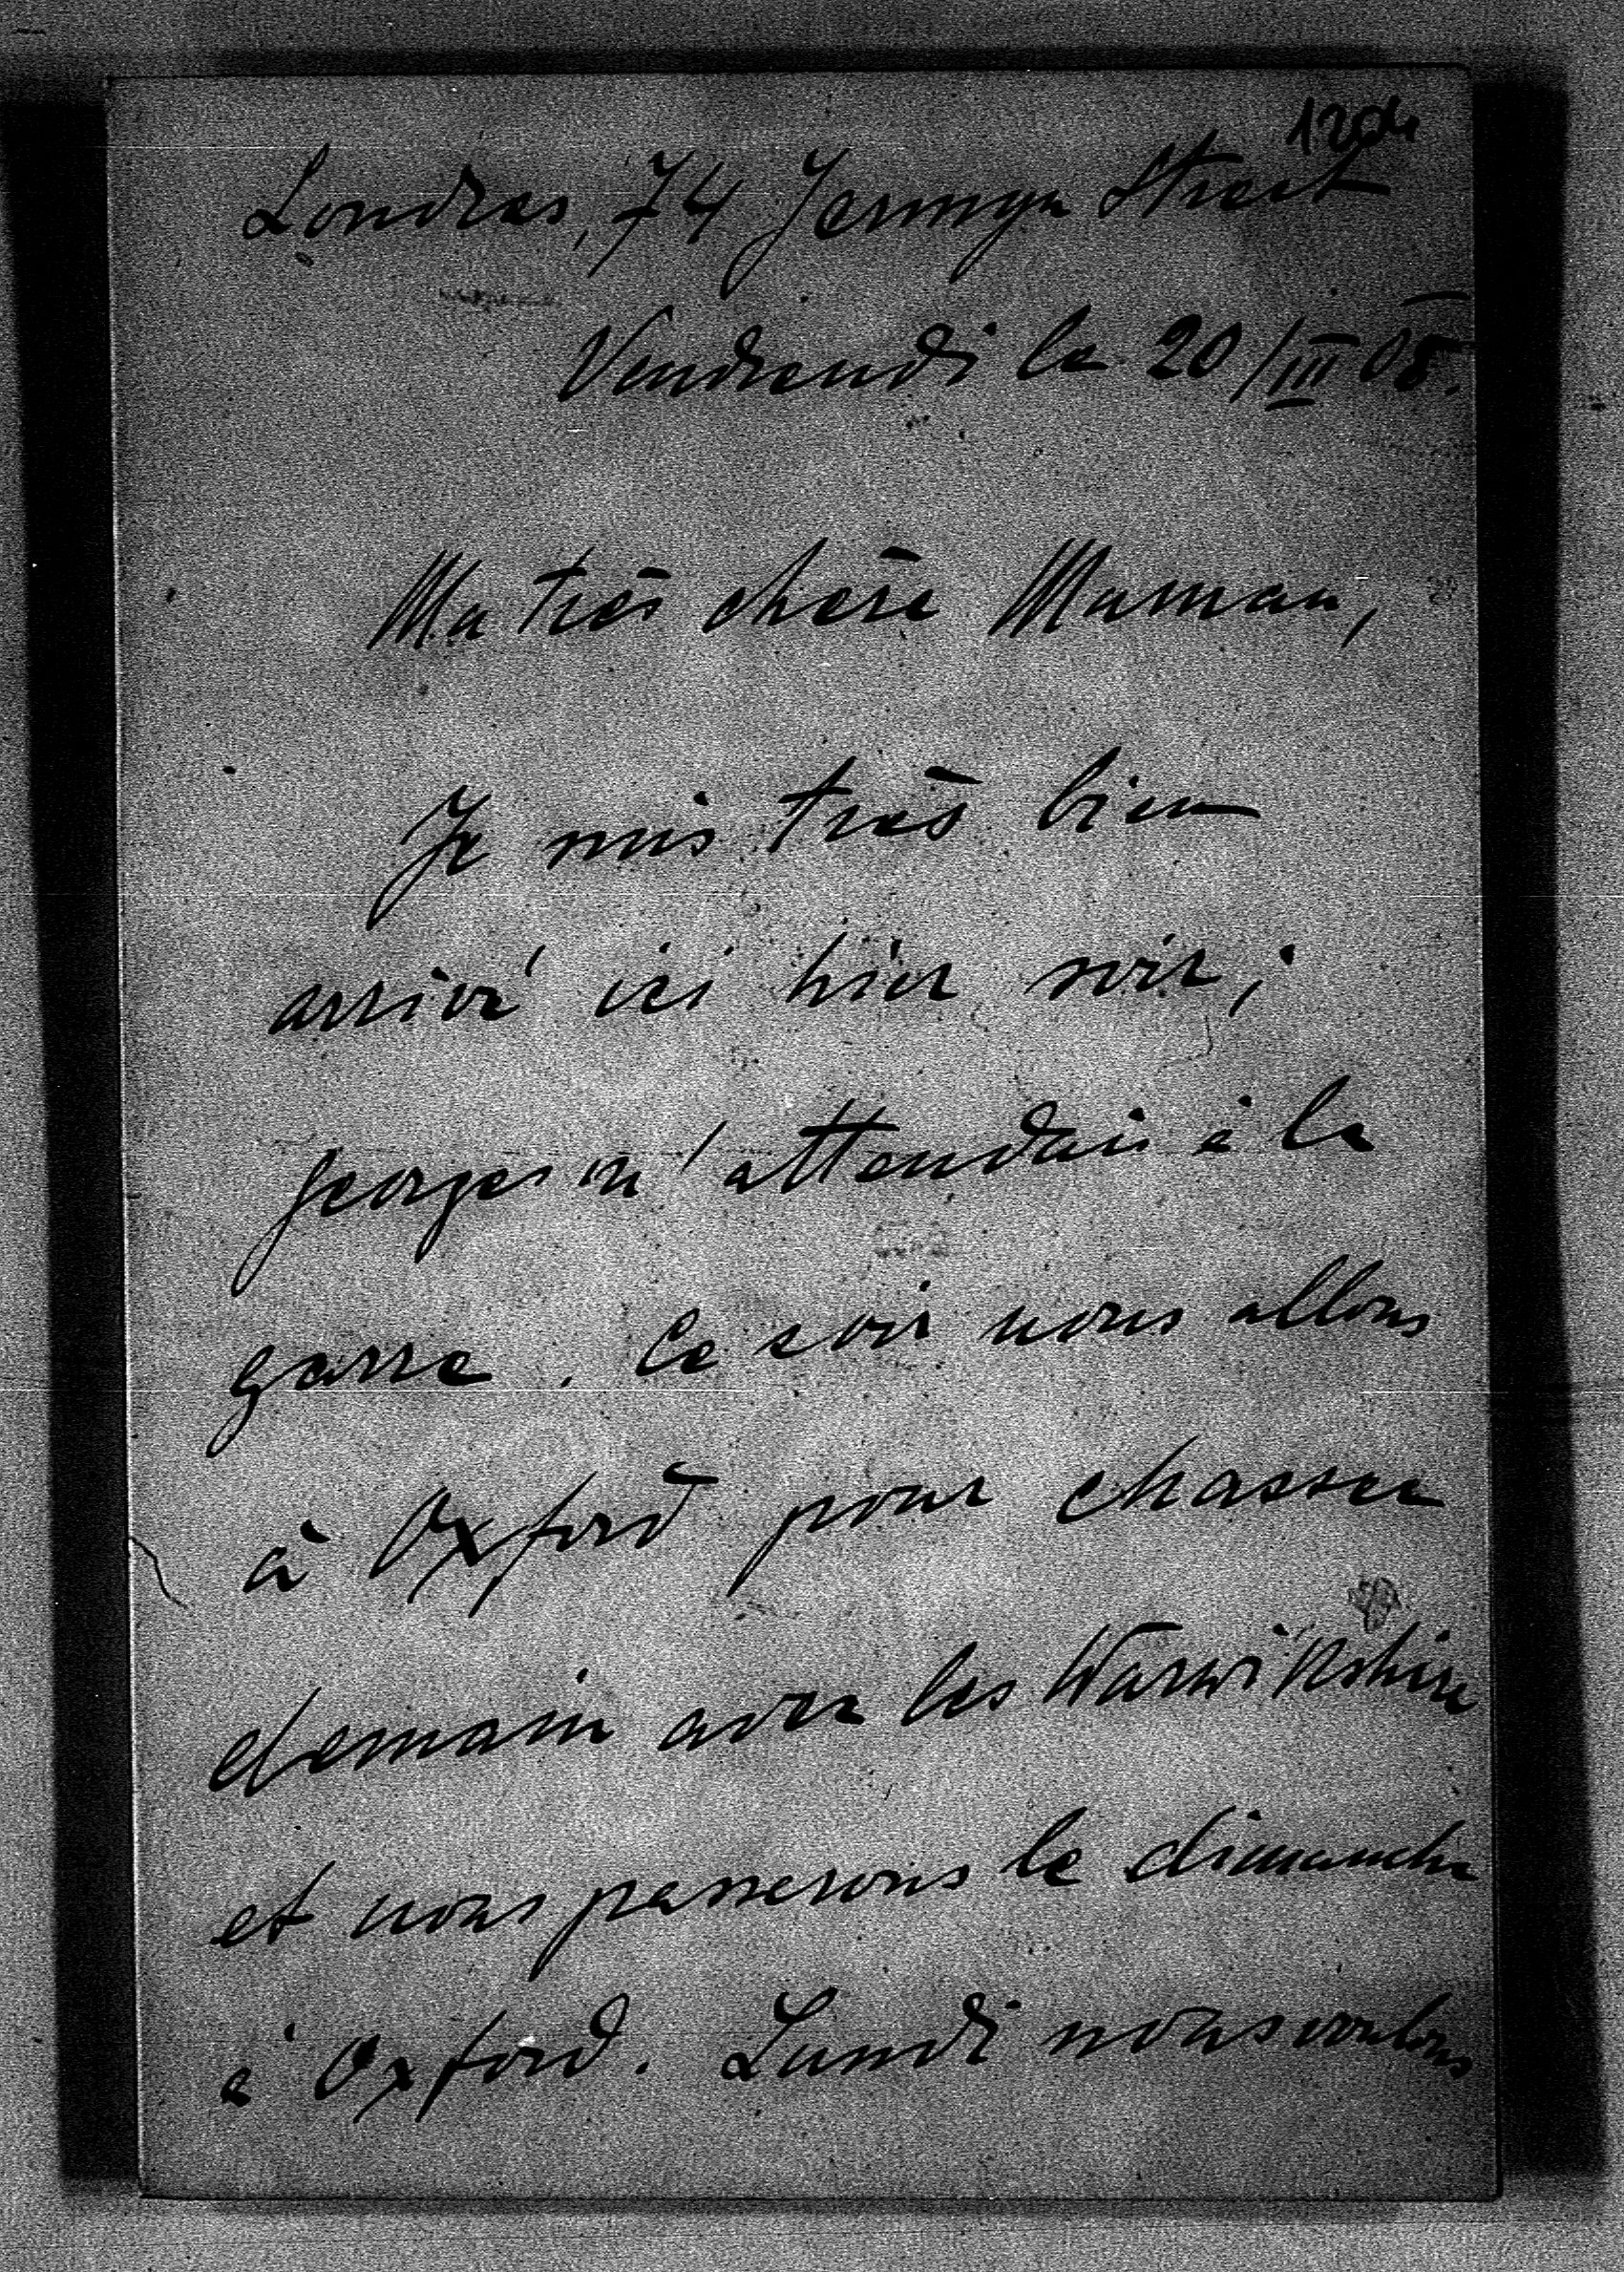 Londres, 74 Jermyn Street
Vendredi le 20/III 08.
Ma très chère Maman,
Je suis très bien
arrivé ici hier soir;
Georges m'attendais à la
garre. Ce soir nous allons
à Oxford pour chasser
demain avec les Warwikshire
et nous passerons le dimanche
à Oxford. Lundi nous voulons